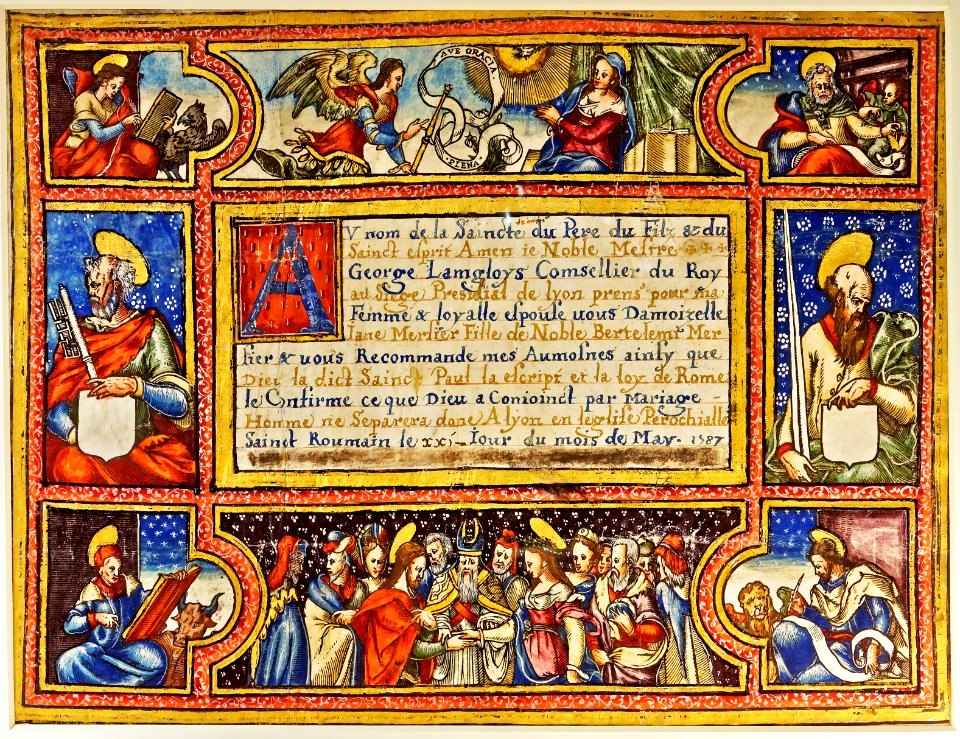 AVE GRACIA
PLENA
AV nom de la Saincte du Pere du Filz & du
Sainct esprit Amen ie Noble Mesire
George Lamgloys Comsellier du Roy
au Siege Presidial de lyon prens pour ma
Femme & loyalle espouse uous Damoizelle
Iane Merlier Fille de Noble Bertelemy Mer
lier & uous Recommande mes Aumosnes ainsy que
Dieu la dict Sainct Paul la escript et la loy de Rome
le Confirme ce que Dieu a Conioinct par Mariage
Homme ne Separera donc A lyon en leglise Perochialle
Sainct Roumain le xxi Iour du mois de May. 1587